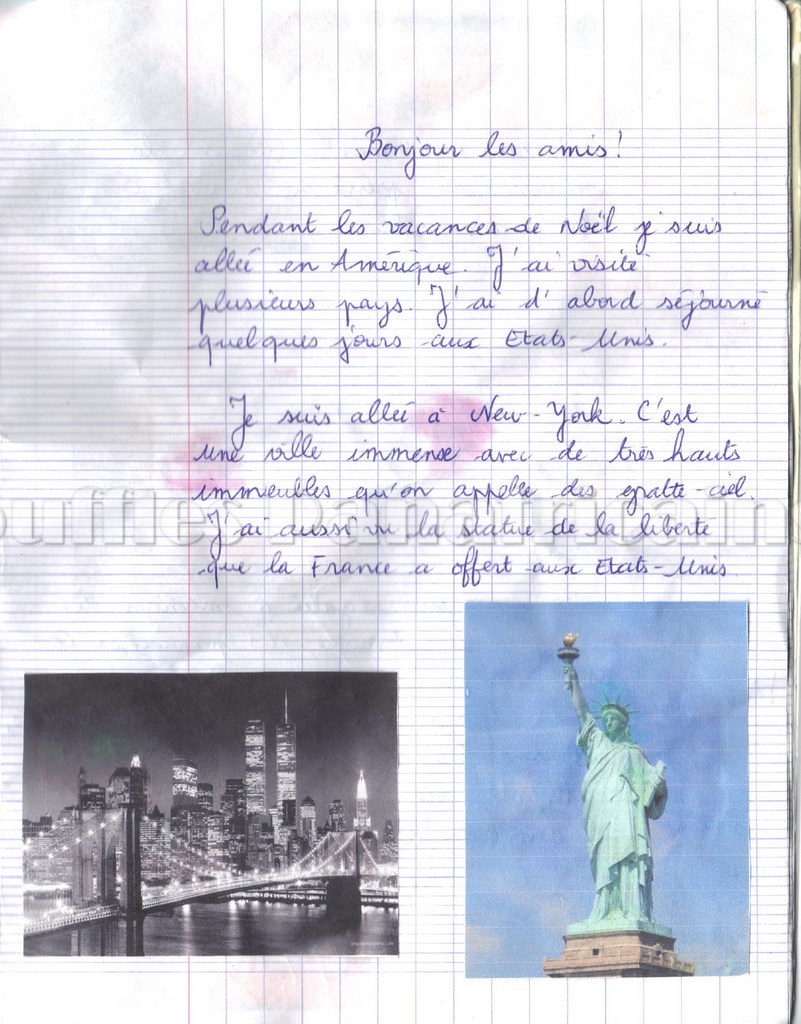 Bonjour les amis!
Pendant les vacances de Noël je suis
allée en Amérique. J'ai visité
plusieurs pays. J'ai d'abord séjourné
quelques jours aux Etats-Unis.
Je suis allée à New-York. C'est
une ville immense avec de très hauts
immeubles qu'on appelle des gratte-ciel.
J'ai aussi vu la statue de la liberté
que la France a offert aux Etats-Unis